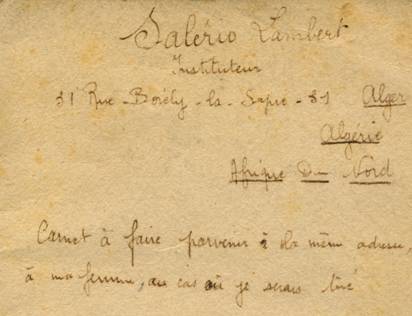 Salério Lambert
Instituteur
31 Rue - Borély - la - Sapie - 31 Alger
Algérie
Afrique Du Nord
Carnet à faire parvenir à la même adresse,
à ma femme, au cas où je serais tué